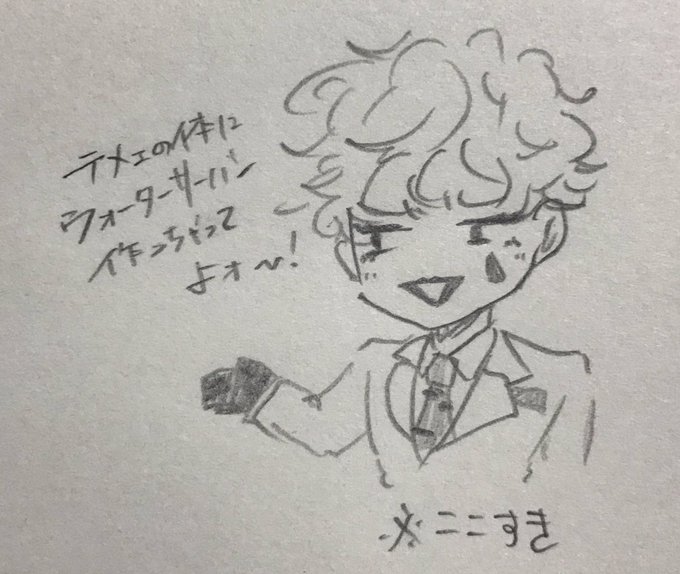 テメェの体に
ウォーターサーバー
作っちゃって
よォ〜!
※ここすき